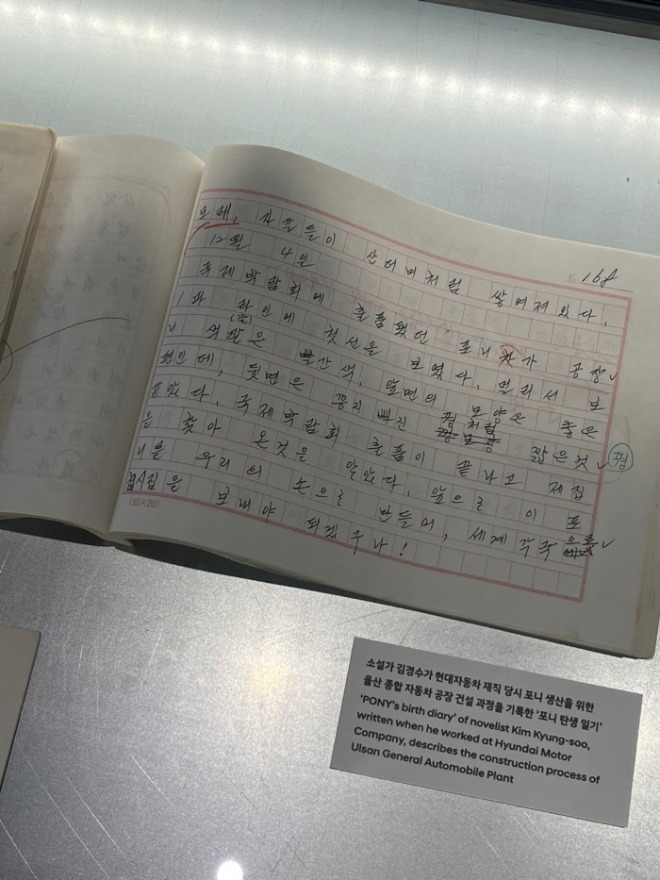 168
모래, 자갈들이 산더미처럼 쌓여져있다.
12월 4일
국제박람회에 출품했던 포니차가 공장
라인에 첫선을 보였다. 멀리서 보
니 색깔은 빨간색, 앞면의 모양은 좋은
편인데, 뒷면은 꽁지 빠진 꿩처럼 짧은것
같았다. 국제박람회 출품이 끝나고 제집
을 찾아 온것을 알았다. 앞으로 이 포
니를 우리의 손으로 만들어, 세계각국으로
시집을 보내야 되겠구나!
(10×20)
소설가 김경수가 현대자동차 재직 당시 포니 생산을 위한
울산 종합 자동차 공장 건설 과정을 기록한 ‘포니 탄생 일기’
‘PONY’s birth diary’ of novelist Kim Kyung-soo,
written when he worked at Hyundai Motor
Company, describes the construction process of
Ulsan General Automobile Plant